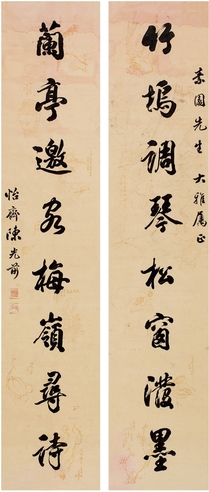 素園先生大雅属正
竹塢調琴松窗潑墨
蘭亭邀客梅嶺尋詩
怡齋陳光前